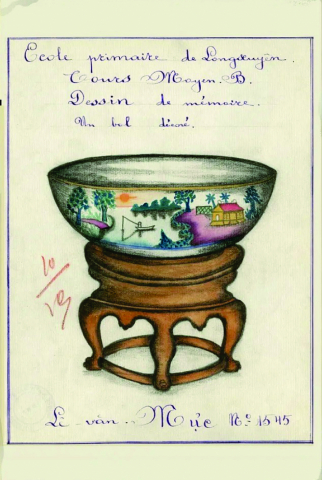 Ecole primaire de Longxuyên.
Cours Moyen B.
Dessin de mémoire.
Un bol décoré.
10
Lê văn Mực No 1545